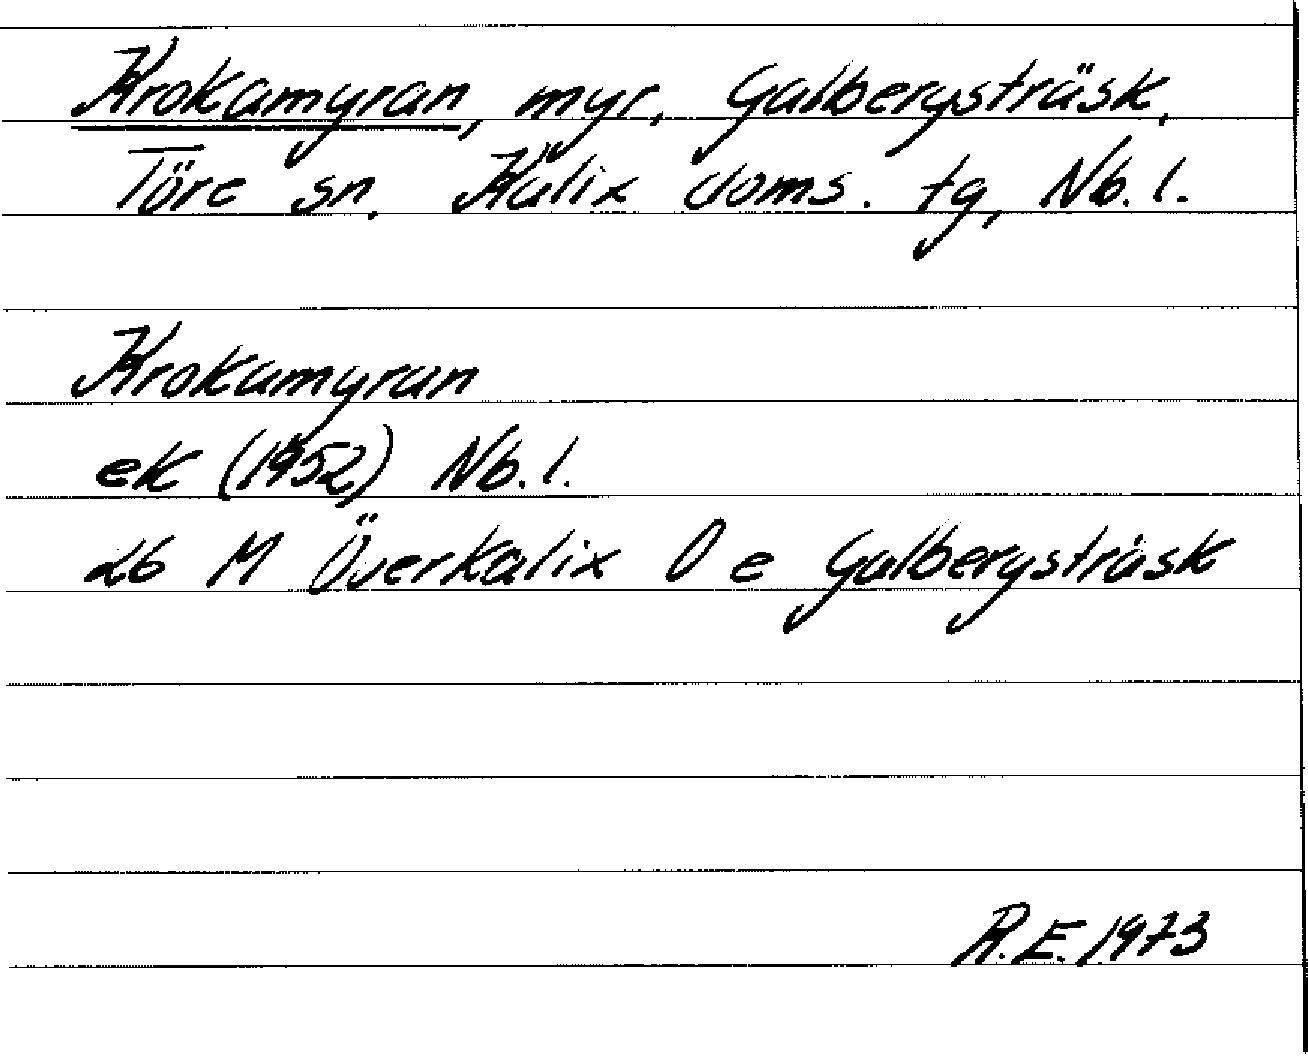 Krokamyran, myr, Galbergsträsk,
Töre sn, Kalix doms. tg, Nb. l.
Krokamyran
ek (1952) Nb. l.
26 M Överkalix O e Galbergsträsk
R.E. 1973